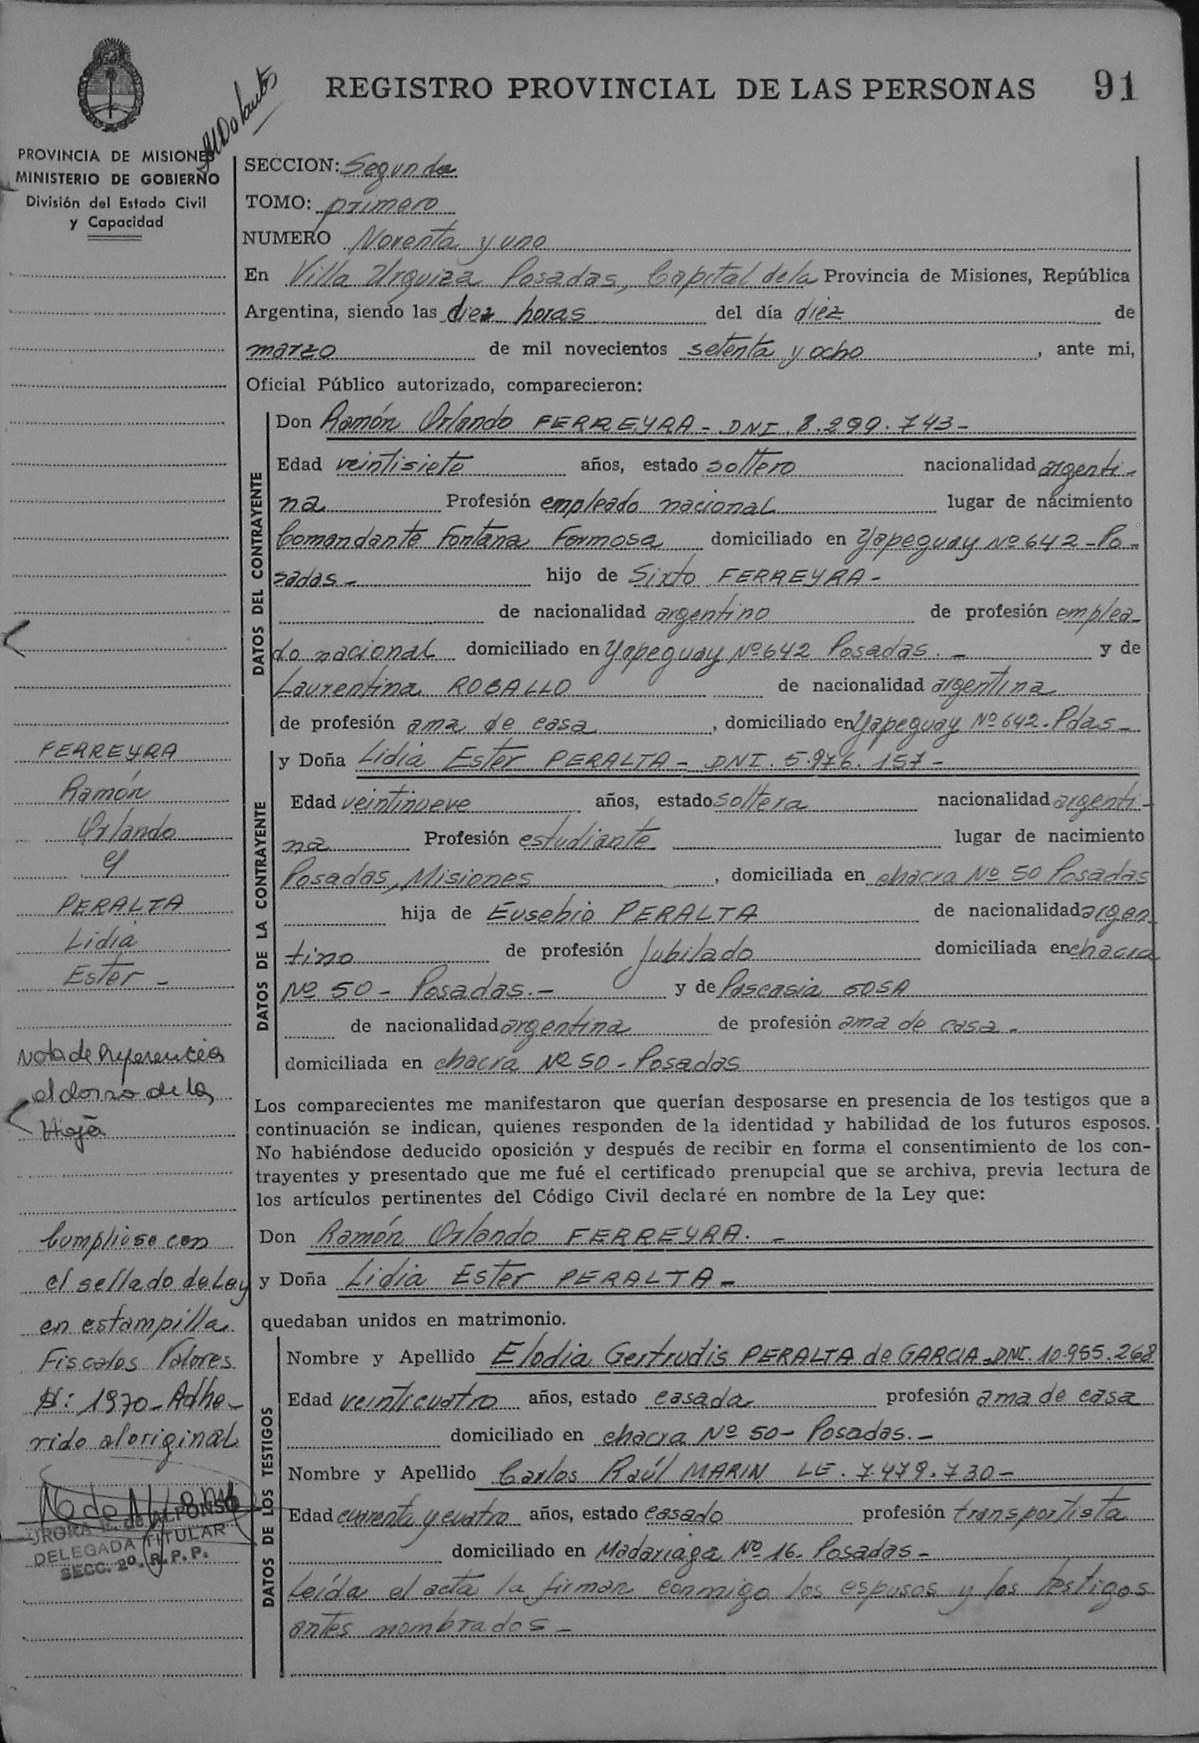 REGISTRO PROVINCIAL DE LAS PERSONAS 91
PROVINCIA DE MISIONES
MINISTERIO DE GOBIERNO
División del Estado Civil
y Capacidad
SECCION: Segunda
TOMO: primero
NUMERO Noventa y uno
En Villa Urquiza Posadas, Capital de la Provincia de Misiones, República
Argentina, siendo las diez horas del día diez de
marzo de mil novecientos setenta y ocho, ante mi,
Oficial Público autorizado, comparecieron:
DATOS DEL CONTRAYENTE
Don Ramón Orlando FERREYRA - DNI. 8.299.743-
Edad veintisiete años, estado soltero nacionalidad argenti-
na Profesión empleado nacional lugar de nacimiento
Comandante Fontana Formosa domiciliado en Yapeguay Nº 642 - Po-
sadas- hijo de Sixto FERREYRA -
de nacionalidad argentino de profesión emplea-
do nacional domiciliado en Yapeguay Nº 642 Posadas. - y de
Laurentina ROBALLO de nacionalidad argentina
de profesión ama de casa, domiciliado en Yapeguay Nº 642 - Pdas -
DATOS DE LA CONTRAYENTE
y Doña Lidia Ester PERALTA - DNI. 5.976.157 -
Edad veintinueve años, estado soltera nacionalidad argenti-
na Profesión estudiante lugar de nacimiento
Posadas, Misiones, domiciliada en chacra Nº 50 Posadas
hija de Eusebio PERALTA de nacionalidad argen
tino de profesión Jubilado domiciliada en chacra
Nº 50 - Posadas. - y de Pascasia SOSA
de nacionalidad argentina de profesión ama de casa -
domiciliada en chacra Nº 50 - Posadas
Los comparecientes me manifestaron que querían desposarse en presencia de los testigos que a
continuación se indican, quienes responden de la identidad y habilidad de los futuros esposos.
No habiéndose deducido oposición y después de recibir en forma el consentimiento de los con-
trayentes y presentado que me fué el certificado prenupcial que se archiva, previa lectura de
los artículos pertinentes del Código Civil declaré en nombre de la Ley que:
Don Ramón Orlando FERREYRA. -
y Doña Lidia Ester PERALTA -
quedaban unidos en matrimonio.
DATOS DE LOS TESTIGOS
Nombre y Apellido Elodia Gertrudis PERALTA de GARCIA - DNI. 10.985.268
Edad veinticuatro años, estado casada profesión ama de casa
domiciliado en chacra Nº 50 - Posadas. -
Nombre y Apellido Carlos Raúl MARIN LE. 7.479.730 -
Edad cuarenta y cuatro años, estado casado profesión transportista
domiciliado en Madariaga Nº 16 - Posadas -
Leída el acta la firman conmigo los esposos y los testigos
antes nombrados -
FERREYRA
Ramón
Orlando
y
PERALTA
Lidia
Ester -
Nota de Referencia
al dorso de la
Hoja
Cumpliose con
el sellado de Ley
en estampilla
Fiscales Valores
$: 1970 - Adhe-
rido al original
DE ALFONSO
DELEGADA TITULAR
SECC. 2º. R. P. P.